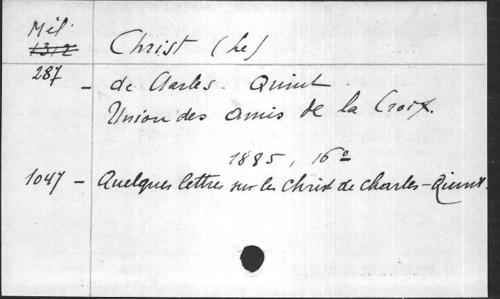 Mél.
1312 Christ (Le)
287 - de Charles-Quint.
Union des amis de la Croix.
1885, 16º
1047 - Quelques lettres sur les Christ de Charles-Quint.